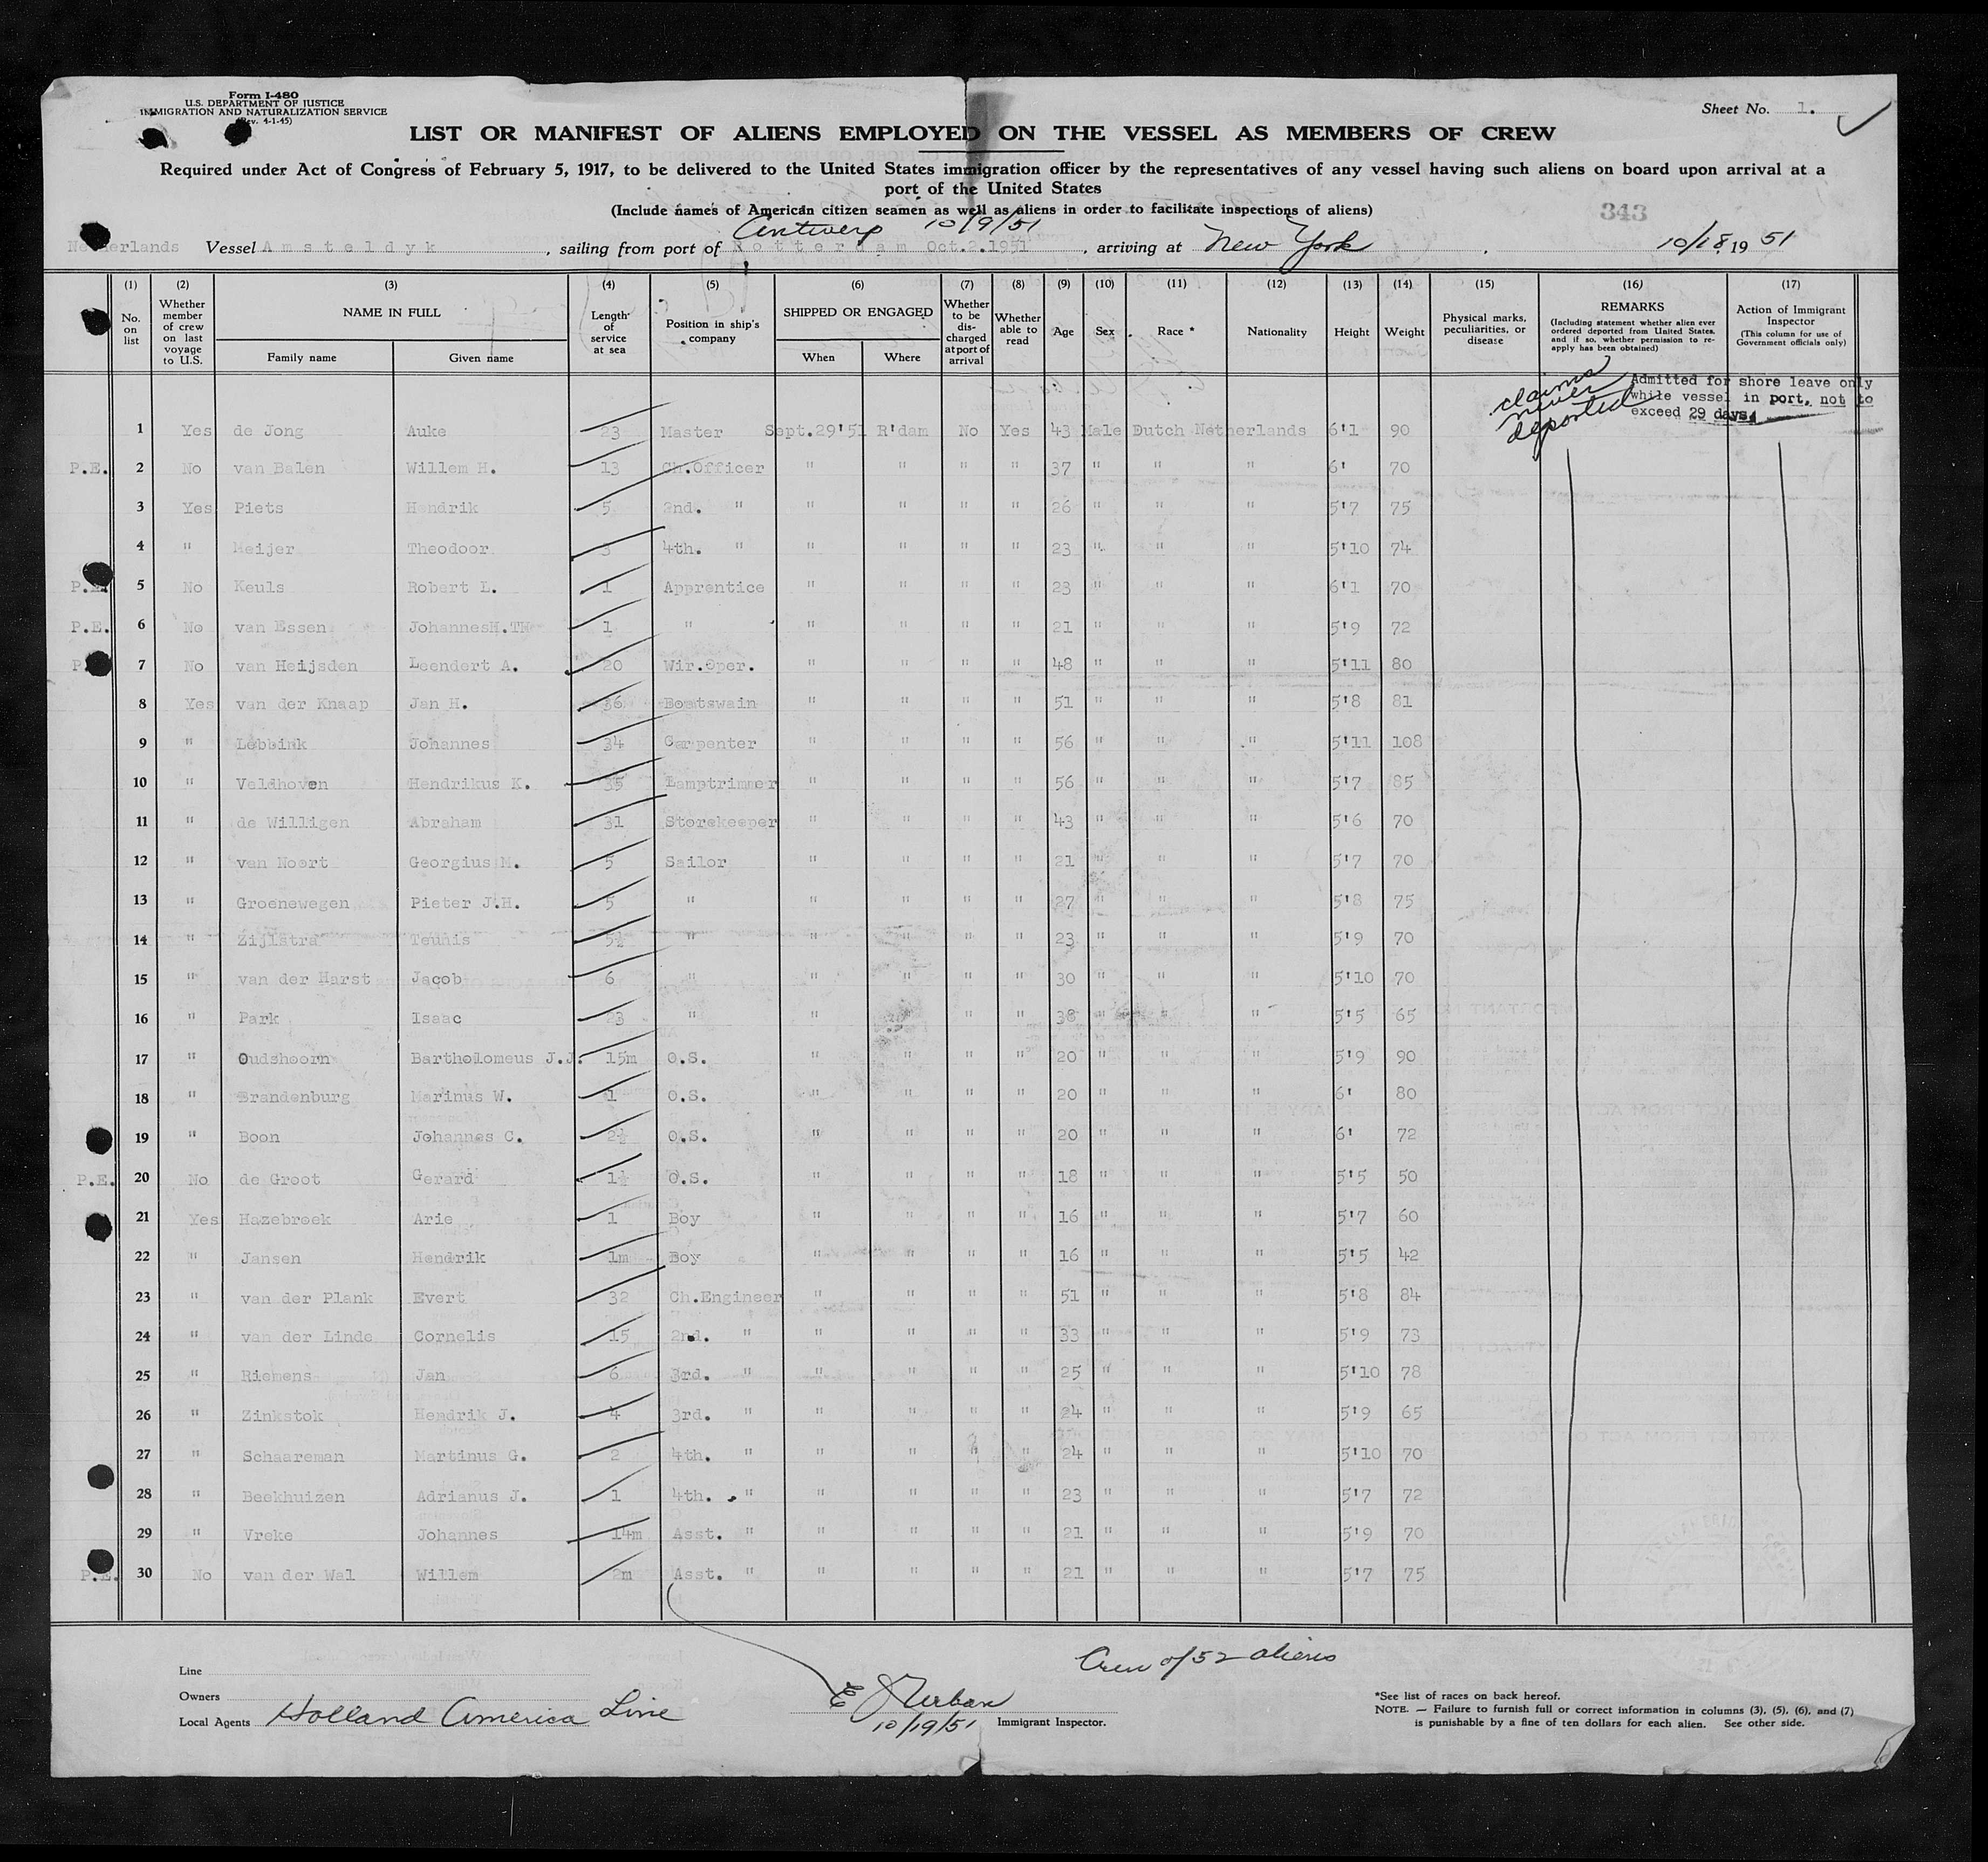 Form I-480
U.S. DEPARTMENT OF JUSTICE
IMMIGRATION AND NATURALIZATION SERVICE
(Rev. 4-1-45)
Sheet No. 1.
LIST OR MANIFEST OF ALIENS EMPLOYED ON THE VESSEL AS MEMBERS OF CREW
Required under Act of Congress of February 5, 1917, to be delivered to the United States immigration officer by the representatives of any vessel having such aliens on board upon arrival at a
port of the United States
(Include names of American citizen seamen as well as aliens in order to facilitate inspections of aliens)
343
Antwerp 10/9/51
Netherlands Vessel Amsteldyk, sailing from port of Rotterdam Oct.2.1951, arriving at New York, 10/18, 19 51
(1) (2) (3) (4) (5) (6) (7) (8) (9) (10) (11) (12) (13) (14) (15) (16) (17)
No. on list
Whether member of crew on last voyage to U.S.
NAME IN FULL
Family name Given name
Length of service at sea
Position in ship's company
SHIPPED OR ENGAGED
When Where
Whether to be discharged at port of arrival
Whether able to read
Age Sex Race * Nationality Height Weight
Physical marks, peculiarities, or disease
REMARKS
(Including statement whether alien ever ordered deported from United States, and if so, whether permission to reapply has been obtained)
Action of Immigrant Inspector
(This column for use of Government officials only)
claims never deported
Admitted for shore leave only
while vessel in port, not to
exceed 29 days.
1 Yes de Jong Auke 23 Master Sept.29'51 R'dam No Yes 43 Male Dutch Netherlands 6'1 90
P.E. 2 No van Balen Willem H. 13 Ch.Officer " " " " 37 " " " 6' 70
3 Yes Piets Hendrik 5 2nd. " " " " " 26 " " " 5'7 75
4 " Meijer Theodoor 3 4th. " " " " " 23 " " " 5'10 74
P.E. 5 No Keuls Robert L. 1 Apprentice " " " " 23 " " " 6'1 70
P.E. 6 No van Essen JohannesH.TH 1 " " " " " 21 " " " 5'9 72
P. 7 No van Heijsden Leendert A. 20 Wir.Oper. " " " " 48 " " " 5'11 80
8 Yes van der Knaap Jan H. 36 Boatswain " " " " 51 " " " 5'8 81
9 " Lebbink Johannes 34 Carpenter " " " " 56 " " " 5'11 108
10 " Veldhoven Hendrikus K. 35 Lamptrimmer " " " " 56 " " " 5'7 85
11 " de Willigen Abraham 31 Storekeeper " " " " 43 " " " 5'6 70
12 " van Noort Georgius M. 5 Sailor " " " " 21 " " " 5'7 70
13 " Groenewegen Pieter J.H. 5 " " " " " 27 " " " 5'8 75
14 " Zijlstra Teunis 5½ " " " " " 23 " " " 5'9 70
15 " van der Harst Jacob 6 " " " " " 30 " " " 5'10 70
16 " Park Isaac 23 " " " " " 38 " " " 5'5 65
17 " Oudshoorn Bartholomeus J.J. 15m O.S. " " " " 20 " " " 5'9 90
18 " Brandenburg Marinus W. 1 O.S. " " " " 20 " " " 6' 80
19 " Boon Johannes C. 2½ O.S. " " " " 20 " " " 6' 72
P.E. 20 No de Groot Gerard 1½ O.S. " " " " 18 " " " 5'5 50
21 Yes Hazebroek Arie 1 Boy " " " " 16 " " " 5'7 60
22 " Jansen Hendrik 1m Boy " " " " 16 " " " 5'5 42
23 " van der Plank Evert 32 Ch.Engineer " " " " 51 " " " 5'8 84
24 " van der Linde Cornelis 15 2nd. " " " " " 33 " " " 5'9 73
25 " Riemens Jan 6 3rd. " " " " " 25 " " " 5'10 78
26 " Zinkstok Hendrik J. 4 3rd. " " " " " 24 " " " 5'9 65
27 " Schaareman Martinus G. 2 4th. " " " " " 24 " " " 5'10 70
28 " Beekhuizen Adrianus J. 1 4th. " " " " " 23 " " " 5'7 72
29 " Vreke Johannes 14m Asst. " " " " " 21 " " " 5'9 70
P.E. 30 No van der Wal Willem 2m Asst. " " " " " 21 " " " 5'7 75
Crew of 52 aliens
Line
Owners
Local Agents Holland America Line
10/19/51 Immigrant Inspector.
*See list of races on back hereof.
NOTE. — Failure to furnish full or correct information in columns (3), (5), (6), and (7)
is punishable by a fine of ten dollars for each alien. See other side.